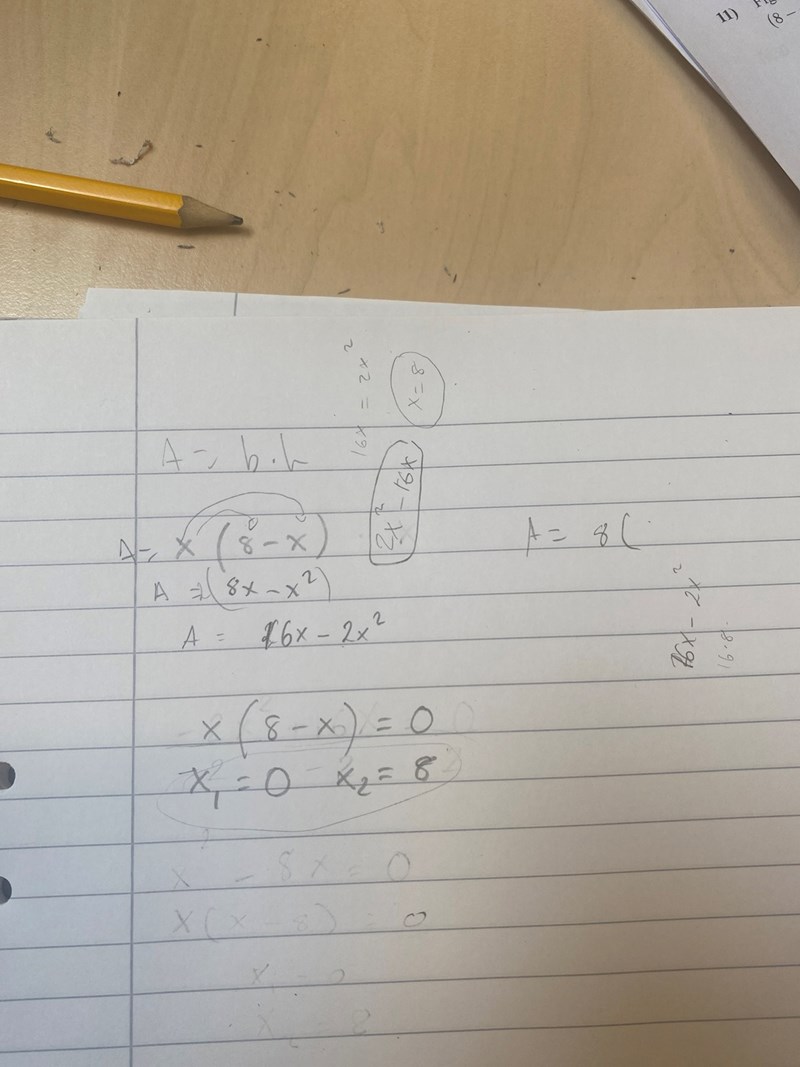 11)
(8-
16x = 2x²
x=8
A = b·h
2x² - 16x
A = x (8-x)
A = 8(
A = (8x-x²)
A = 16x - 2x²
16x - 2x²
16·8
x (8-x) = 0
x₁ = 0 x₂ = 8
x² - 8x = 0
x(x-8) = 0
x₁ = 0
x₂ = 8